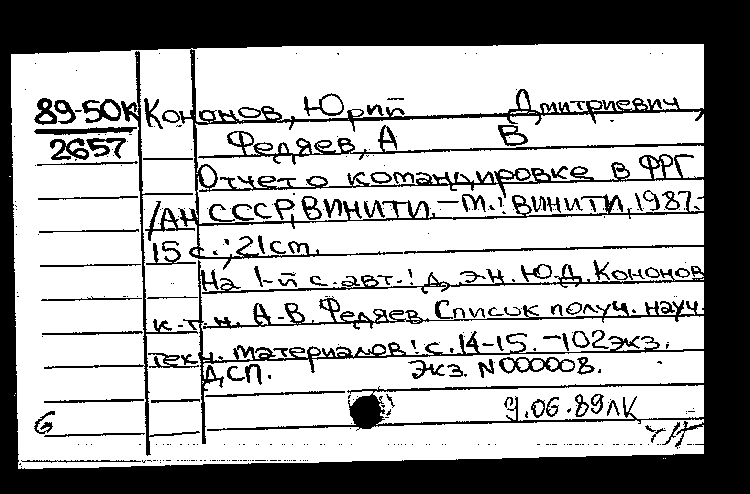 89-50К Кононов, Юрий Дмитриевич,
2657 Федяев, А В
Отчет о командировке в ФРГ
/АН СССР, ВИНИТИ. - М.: ВИНИТИ, 1987.-
15 с.; 21 см.
На 1-й с. авт.: д. э. н. Ю.Д. Кононов
к. т. н. А. В. Федяев. Список получ. науч.
техн. материалов: с. 14-15. - 102 экз.
ДСП. Экз. N000008.
9.06.89 ЛК
6